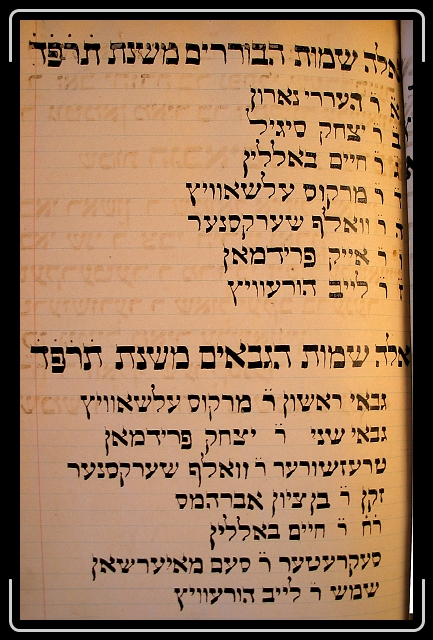 אלה שמות הבוררים משנת תרפ״ד
א ר׳ הערי נארון
ב ר׳ יצחק סיגיל
ג ר׳ חיים באללין
ד ר׳ מרקוס עלשאוויץ
ה ר׳ וואלף שערקסנער
ו ר׳ אייק פרידמאן
ז ר׳ לייב הורעוויץ
אלה שמות הגבאים משנת תרפ״ד
גבאי ראשון ר׳ מרקוס עלשאוויץ
גבאי שני ר׳ יצחק פרידמאן
טרעזשורער ר׳ וואלף שערקסנער
זקן ר׳ בן ציון אברהמס
ר״ח ר׳ חיים באללין
סעקרעטער ר׳ סעם מאיערשאן
שמש ר׳ לייב הורעוויץ